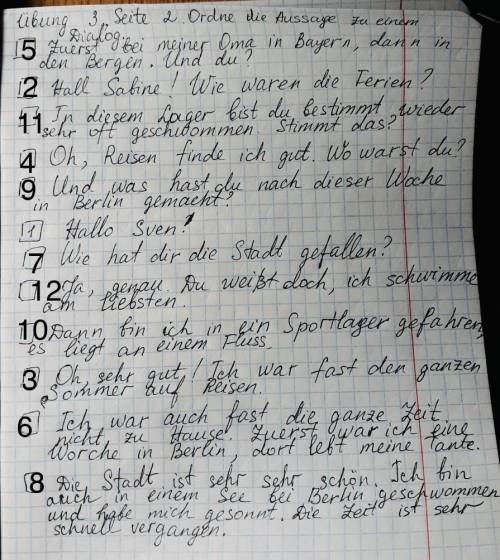 Übung 3, Seite 2. Ordne die Aussage zu einem
Dialog.
5 Zuerst bei meiner Oma in Bayern, dann in
den Bergin. Und du?
2 Hall Sabine! Wie waren die Ferien?
11 In diesem Lager bist du bestimmt wieder
sehr oft geschwommen Stimmt das?
4 Oh, Reisen finde ich gut. Wo warst du?
9 Und was hast du nach dieser Woche
in Berlin gemacht?
1 Hallo Sven!
7 Wie hat dir die Stadt gefallen?
12 Ja, genau. Du weißt doch, ich schwimme
am liebsten.
10 Dann bin ich in ein Sportlager gefahren,
es liegt an einem Fluss.
3 Oh, sehr gut! Ich war fast den ganzen
Sommer auf Reisen.
6 Ich war auch fast die ganze Zeit
nicht zu Hause. Zuerst war ich eine
Worche in Berlin, dort lebt meine Tante.
8 Die Stadt ist sehr sehr schön. Ich bin
auch in einem See bei Berlin geschwommen
und habe mich gesonnt. Die Zeit ist sehr
schnell vergangen.